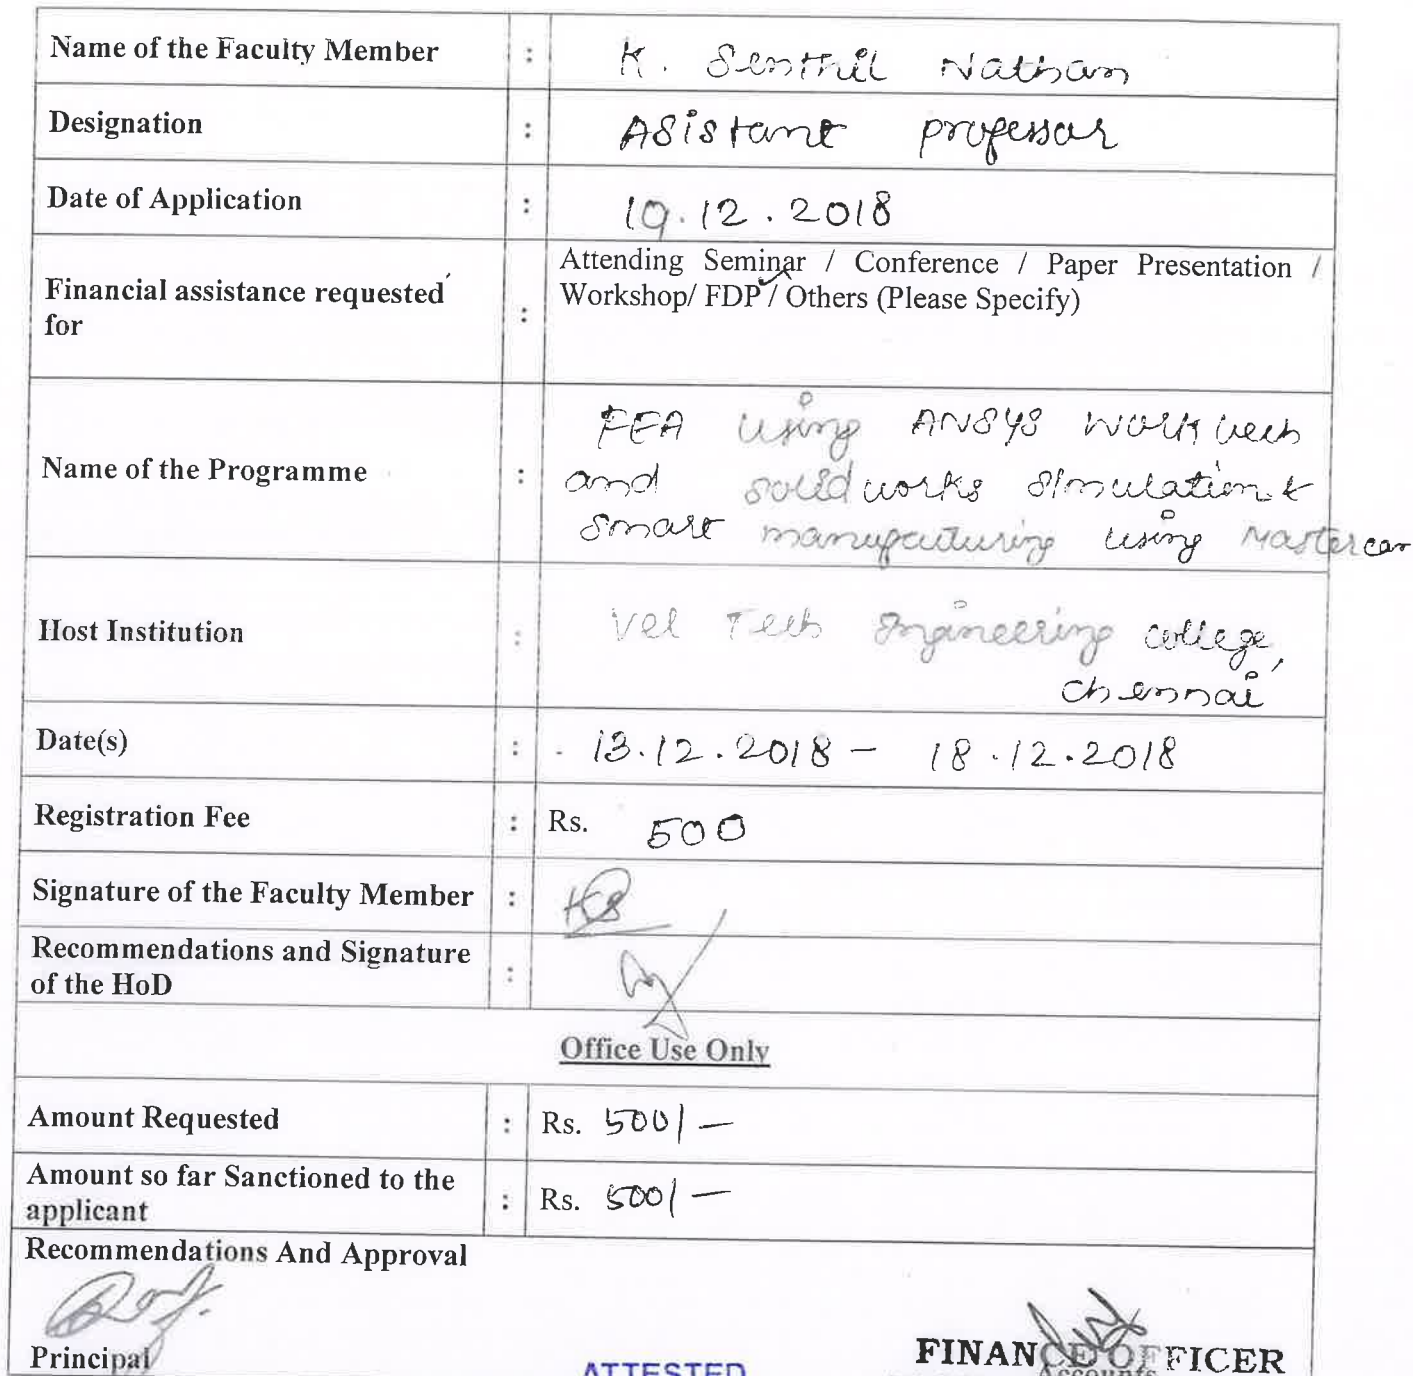 Name of the Faculty Member : K. Senthil Nathan
Designation : Asistant professor
Date of Application : 19.12.2018
Attending Seminar / Conference / Paper Presentation /
Financial assistance requested : Workshop/ FDP / Others (Please Specify)
for
FEA using ANSYS Workbech
Name of the Programme : and solidworks simulation &
smart manufacturing using Mastercam
Host Institution : Vel Tech Engineering college,
Chennai
Date(s) : 13.12.2018 - 18.12.2018
Registration Fee : Rs. 500
Signature of the Faculty Member : KS
Recommendations and Signature :
of the HoD
Office Use Only
Amount Requested : Rs. 500/-
Amount so far Sanctioned to the
applicant : Rs. 500/-
Recommendations And Approval
Principal
FINANCE OFFICER
Accounts
ATTESTED